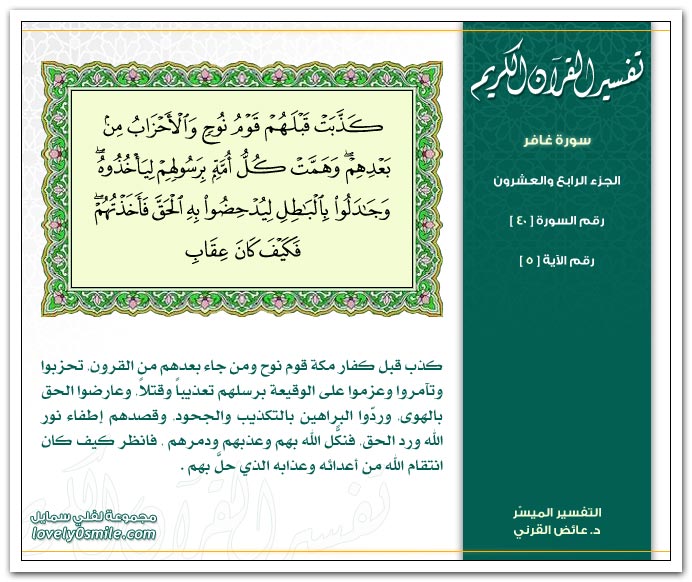 تفسير القرآن الكريم
سورة غافر
الجزء الرابع والعشرون
رقم السورة [ ٤٠ ]
رقم الآية [ ٥ ]
كَذَّبَتْ قَبْلَهُمْ قَوْمُ نُوحٍ وَالْأَحْزَابُ مِنْ
بَعْدِهِمْ ۖ وَهَمَّتْ كُلُّ أُمَّةٍ بِرَسُولِهِمْ لِيَأْخُذُوهُ ۖ
وَجَادَلُوا بِالْبَاطِلِ لِيُدْحِضُوا بِهِ الْحَقَّ فَأَخَذْتُهُمْ ۖ
فَكَيْفَ كَانَ عِقَابِ
كذب قبل كفار مكة قوم نوح ومن جاء بعدهم من القرون، تحزبوا
وتآمروا وعزموا على الوقيعة برسلهم تعذيباً وقتلاً، وعارضوا الحق
بالهوى، وردّوا البراهين بالتكذيب والجحود، وقصدهم إطفاء نور
الله ورد الحق، فنكَّل الله بهم وعذبهم ودمرهم ، فانظر كيف كان
انتقام الله من أعدائه وعذابه الذي حلَّ بهم .
التفسير الميسّر
د. عائض القرني
مجموعة لفلي سمايل
lovely0smile.com
تفسير القرآن الكريم